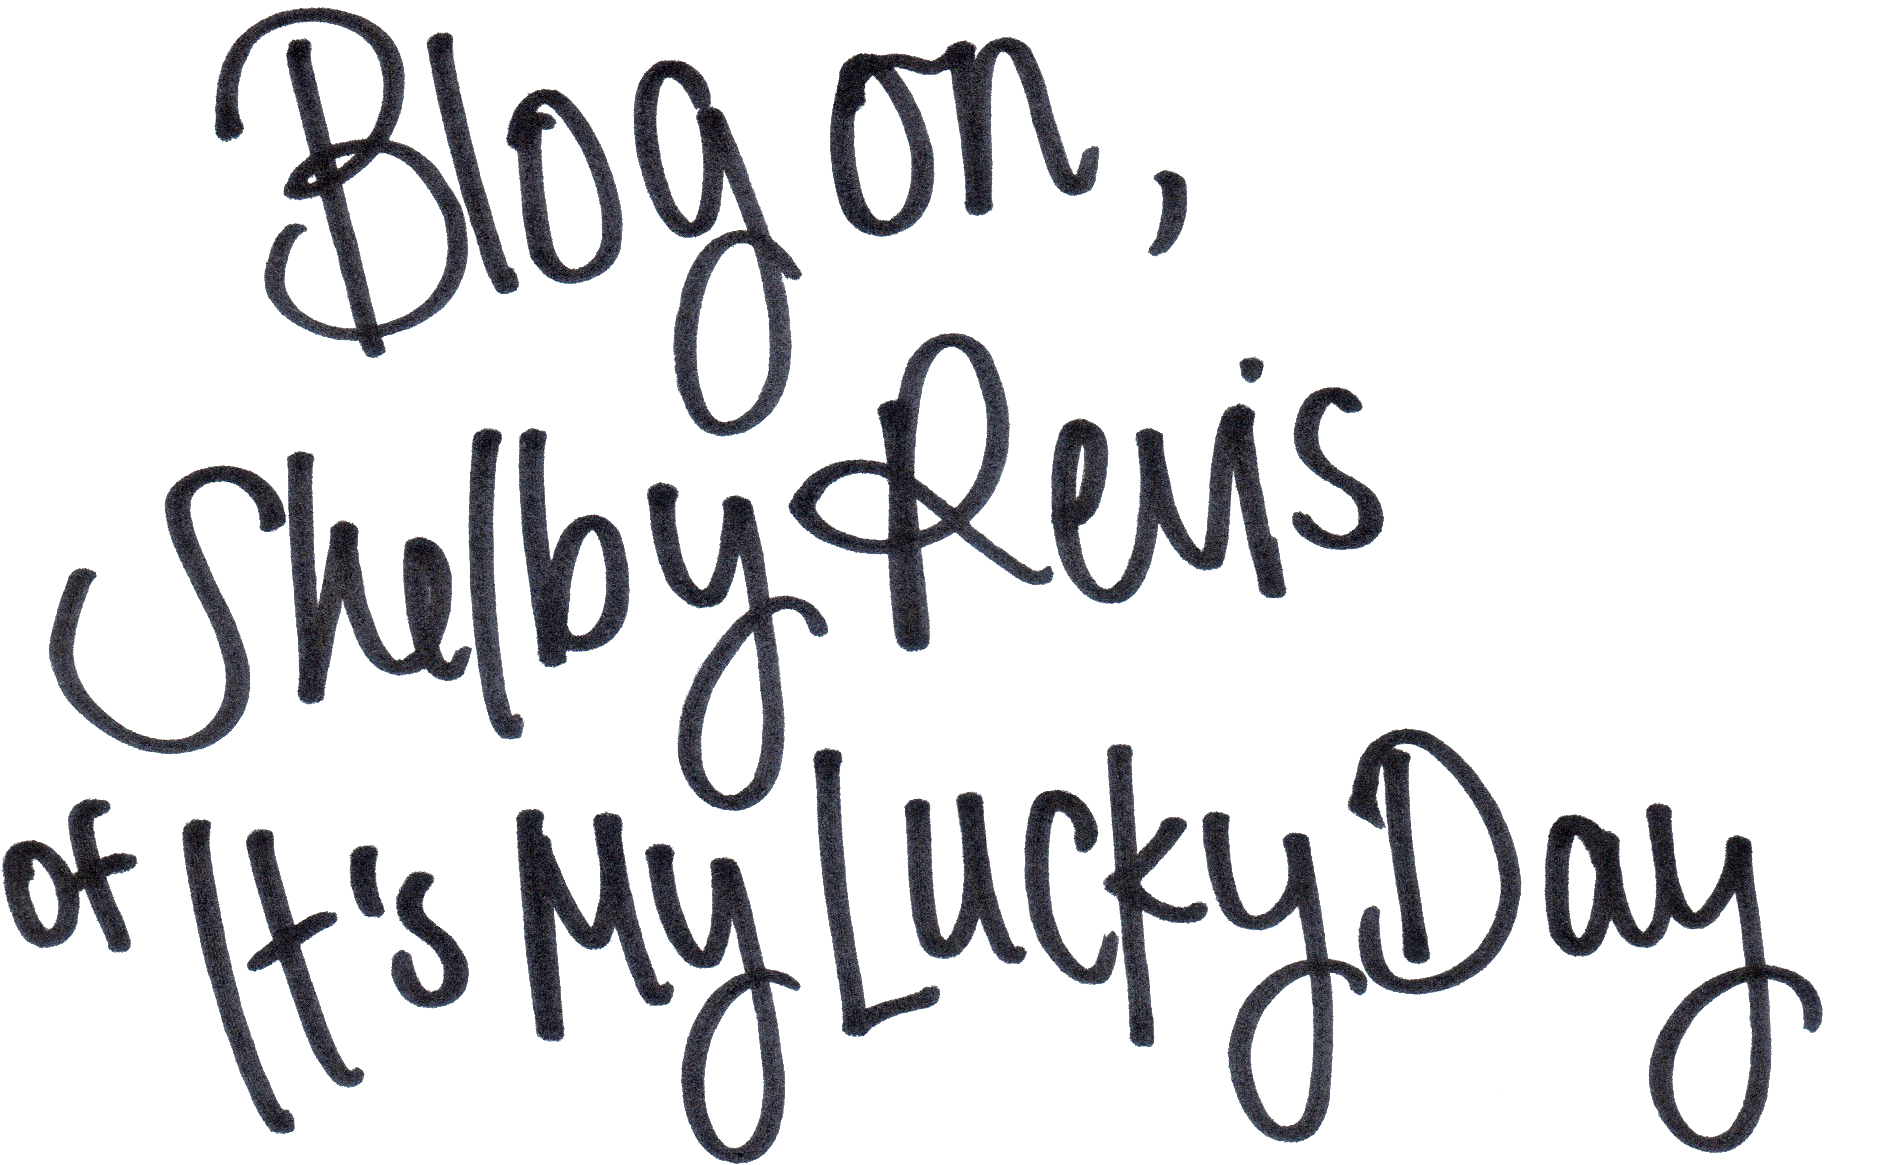 Blog on,
Shelby Revis
of It's My Lucky Day